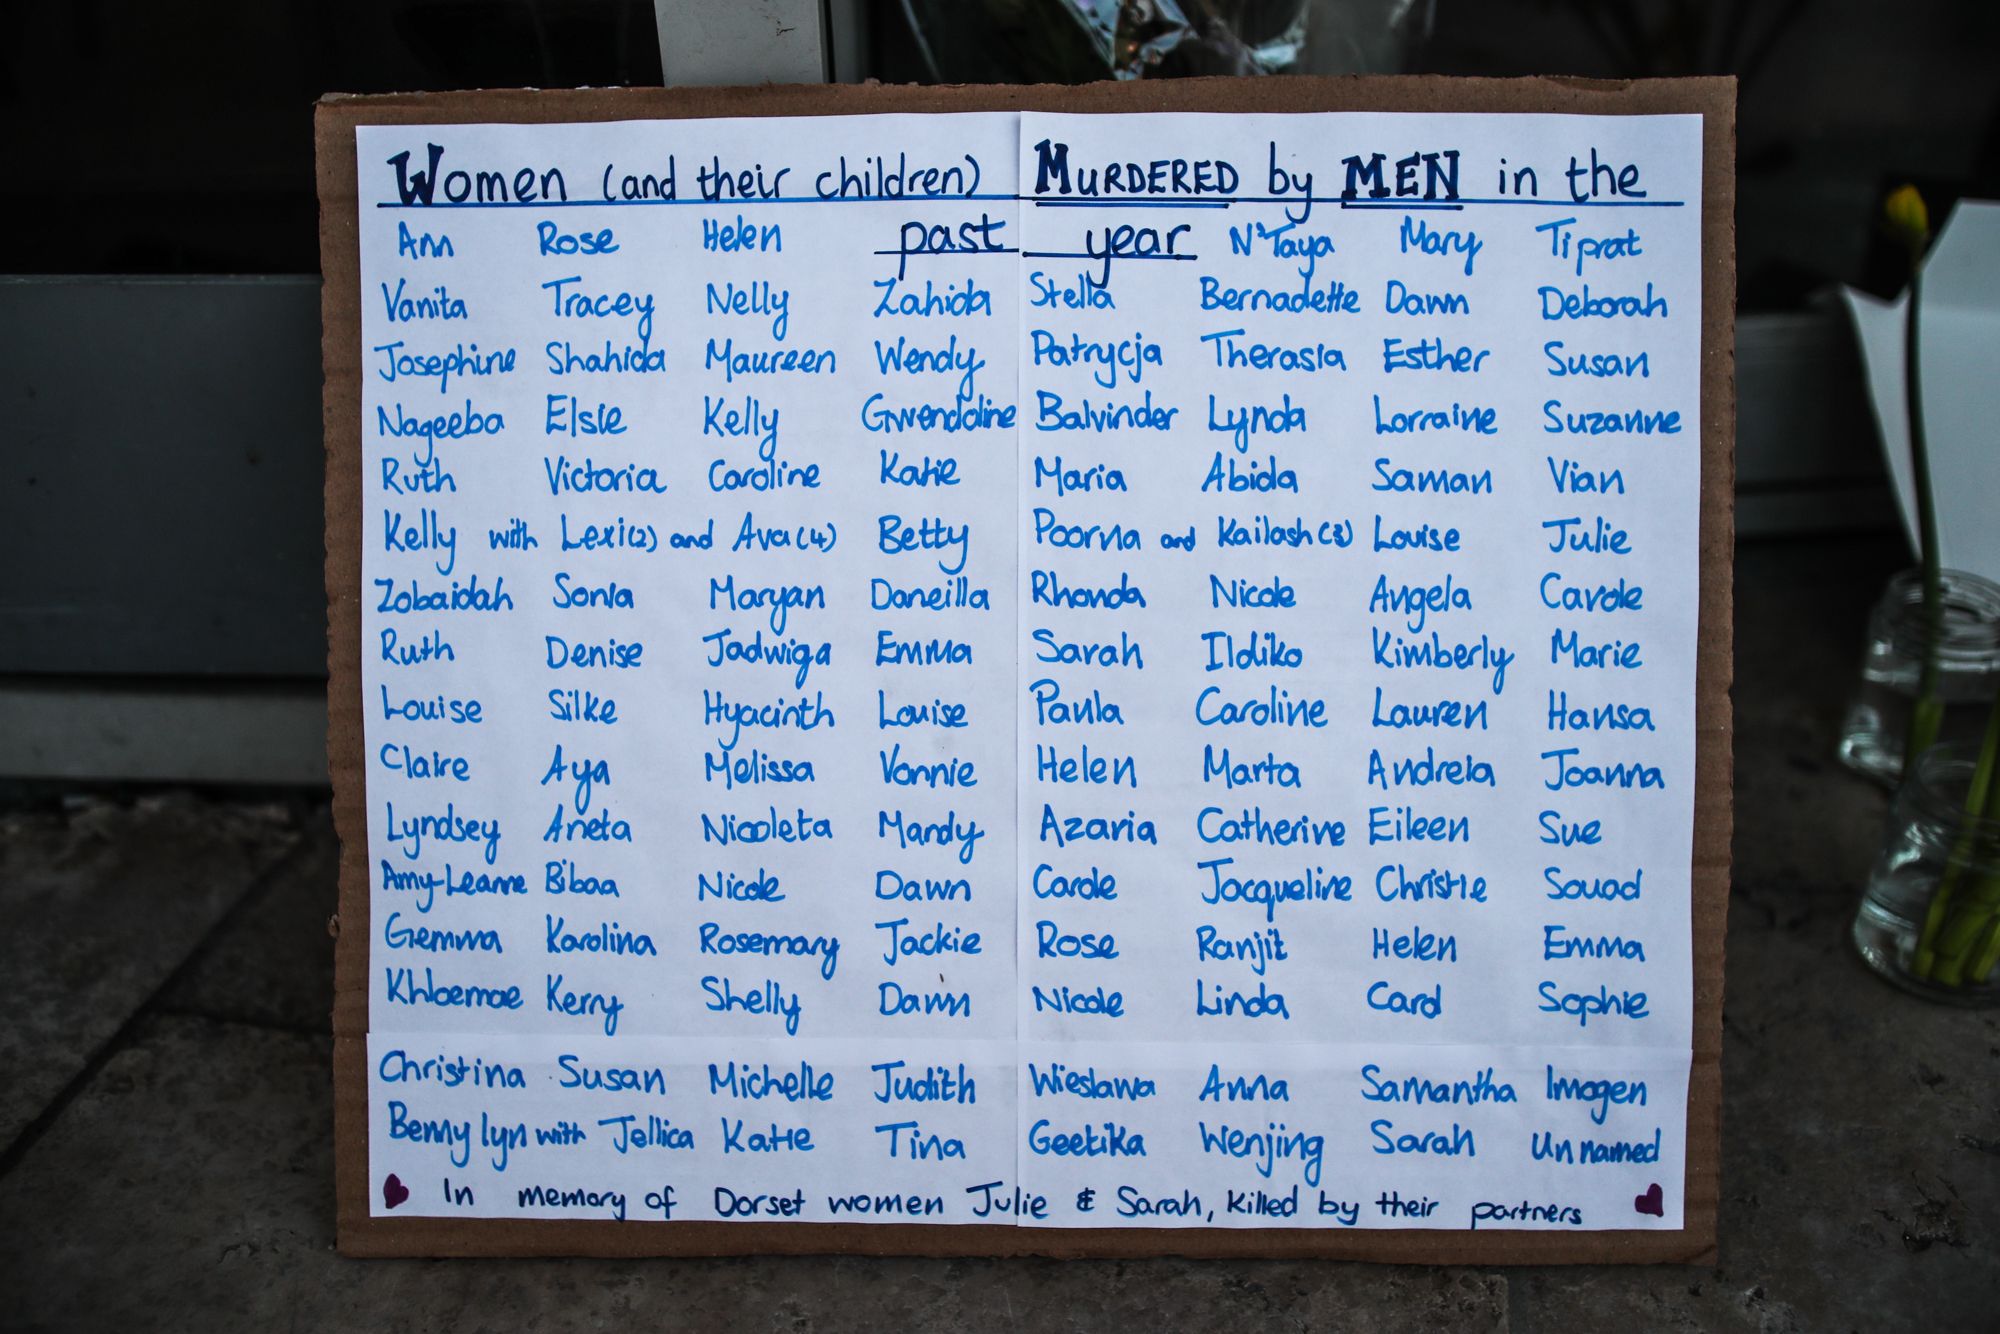 Women (and their children) MURDERED by MEN in the
past year
Ann Rose Helen N'Taya Mary Tiprat
Vanita Tracey Nelly Zahida Stella Bernadette Dawn Deborah
Josephine Shahida Maureen Wendy Patrycja Therasia Esther Susan
Nageeba Elsie Kelly Gwendoline Balvinder Lynda Lorraine Suzanne
Ruth Victoria Caroline Katie Maria Abida Saman Vian
Kelly with Lexi (2) and Ava (4) Betty Poorna and Kailash (3) Louise Julie
Zobaidah Sonia Maryan Daneilla Rhonda Nicole Angela Carole
Ruth Denise Jadwiga Emma Sarah Ildiko Kimberly Marie
Louise Silke Hyacinth Louise Paula Caroline Lauren Hansa
Claire Aya Melissa Vonnie Helen Marta Andreia Joanna
Lyndsey Aneta Nicoleta Mandy Azaria Catherine Eileen Sue
Amy-Leanne Bibaa Nicole Dawn Carole Jacqueline Christie Souad
Gemma Karolina Rosemary Jackie Rose Ranjit Helen Emma
Khloemae Kerry Shelly Dawn Nicole Linda Carol Sophie
Christina Susan Michelle Judith Wieslawa Anna Samantha Imogen
Bennylyn with Jellica Katie Tina Geetika Wenjing Sarah Unnamed
In memory of Dorset women Julie & Sarah, killed by their partners